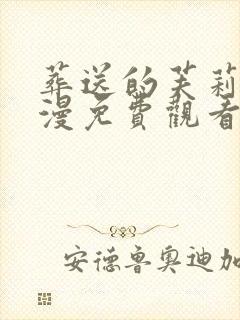 葬送的芙莉
漫免費觀看
安德魯奧迪加